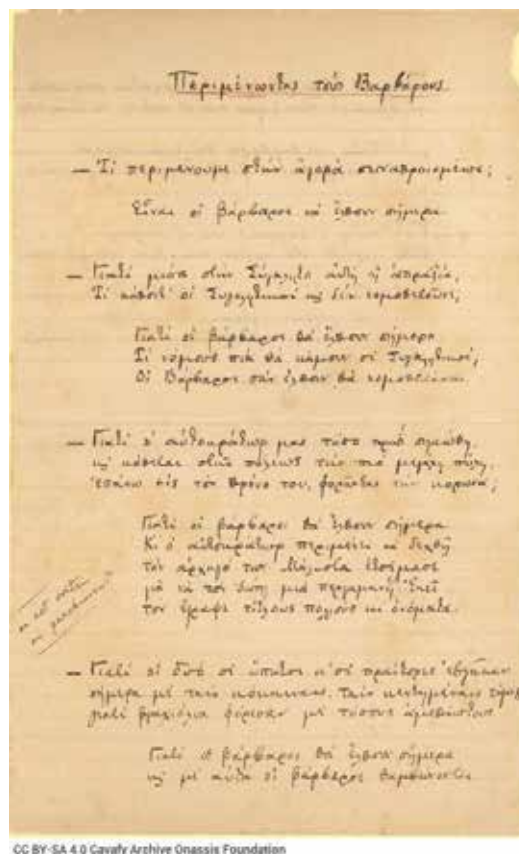 Περιμένοντας τους Βαρβάρους.
— Τί περιμένουμε στην ἀγορά συναθροισμένοι;
Εἶναι οἱ βάρβαροι νά ἔλθουν σήμερα.
— Γιατί μέσα στην Σύγκλητο αὐτή ἡ ἀπραξία,
Τί κάθοντ' οἱ Συγκλητικοί και δέν νομοθετοῦνε;
Γιατί οἱ βάρβαροι θά ἔλθουν σήμερα
Τί νόμους πιά θά κάμουν οἱ Συγκλητικοί;
Οἱ Βάρβαροι σαν ἔλθουν θά νομοθετήσουν.
— Γιατί ὁ αὐτοκράτωρ μας τόσο πρωί σηκώθη,
και κάθεται στῆς πόλεως την πιο μεγάλη πύλη,
ἐπάνω εἰς τον θρόνο του, φορῶντας την κορώνα;
Γιατί οἱ βάρβαροι θά ἔλθουν σήμερα
Κι ὁ αὐτοκράτωρ περιμένει νά δεχθῇ
τον ἀρχηγό των Μάλιστα ἑτοίμασε
γιά νά τον δώσῃ μιά περγαμηνή. Ἐκεῖ
τον ἔγραψε τίτλους πολλούς και ὀνόματα.
— Γιατί οἱ δυό οἱ ὕπατοι κ' οἱ πραίτορες ἐβγῆκαν
σήμερα μέ ταις κόκκιναις, ταις κεντημέναις
γιατί βραχιόλια φόρεσαν μέ τόσους ἀμεθύστους
Γιατί οἱ βάρβαροι θά ἔλθουν σήμερα
και μέ αὐτά οἱ βάρβαροι θαμβώνονται
CC BY-SA 4.0 Cavafy Archive Onassis Foundation